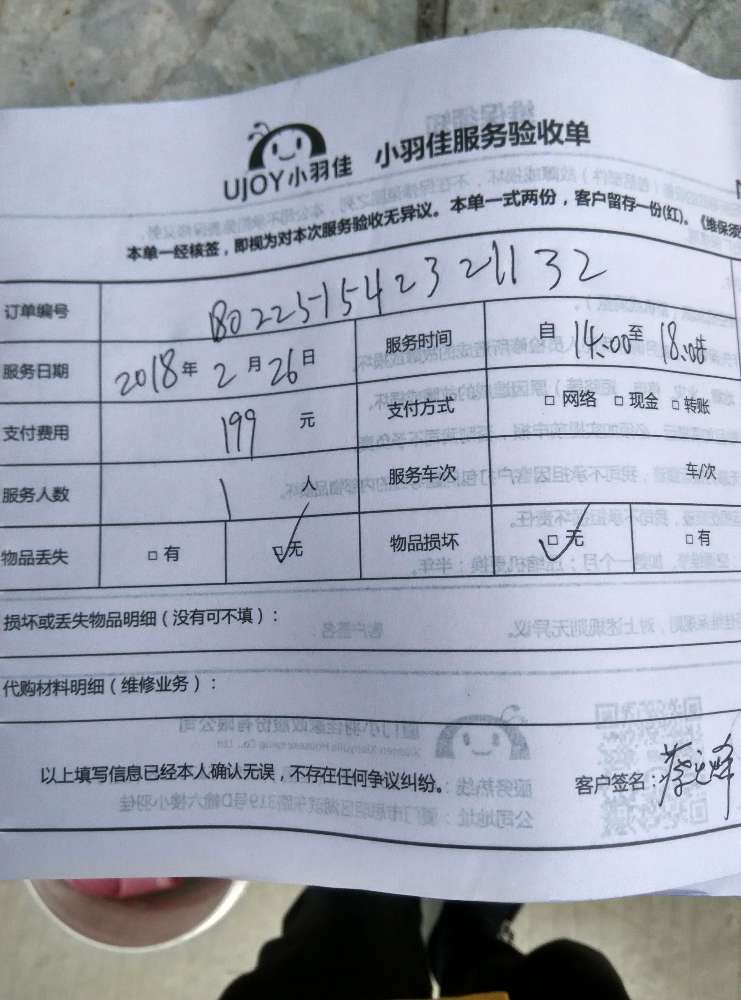 UJOY小羽佳 小羽佳服务验收单
本单一经核签，即视为对本次服务验收无异议。本单一式两份，客户留存一份(红)。《维保须
订单编号 1802251542321132
服务日期 2018年2月26日 服务时间 自14:00至18:00
支付费用 199元 支付方式 □网络 □现金 □转账
服务人数 1人 服务车次 车/次
物品丢失 □有 ☑无 物品损坏 ☑无 □有
损坏或丢失物品明细（没有可不填）：
代购材料明细（维修业务）：
以上填写信息已经本人确认无误，不存在任何争议纠纷。 客户签名：